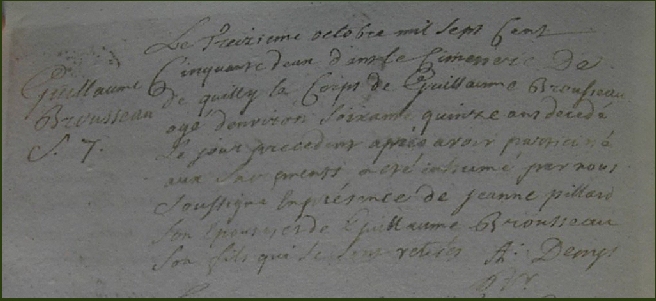 Le treizieme octobre mil sept Cent
Cinquante deux dans le Cimetiere de
Guillaume
Brousseau
S. 7.
de quilly le Corps de Guillaume Brousseau
agé denviron soixante quinze ans decedé
le jour precedent après avoir participé
aux Sacrements a été inhumé par nous
Soussigné En présence de jeanne pillard
Son Epouse et de Guillaume Brousseau
Son fils qui se sont retirés